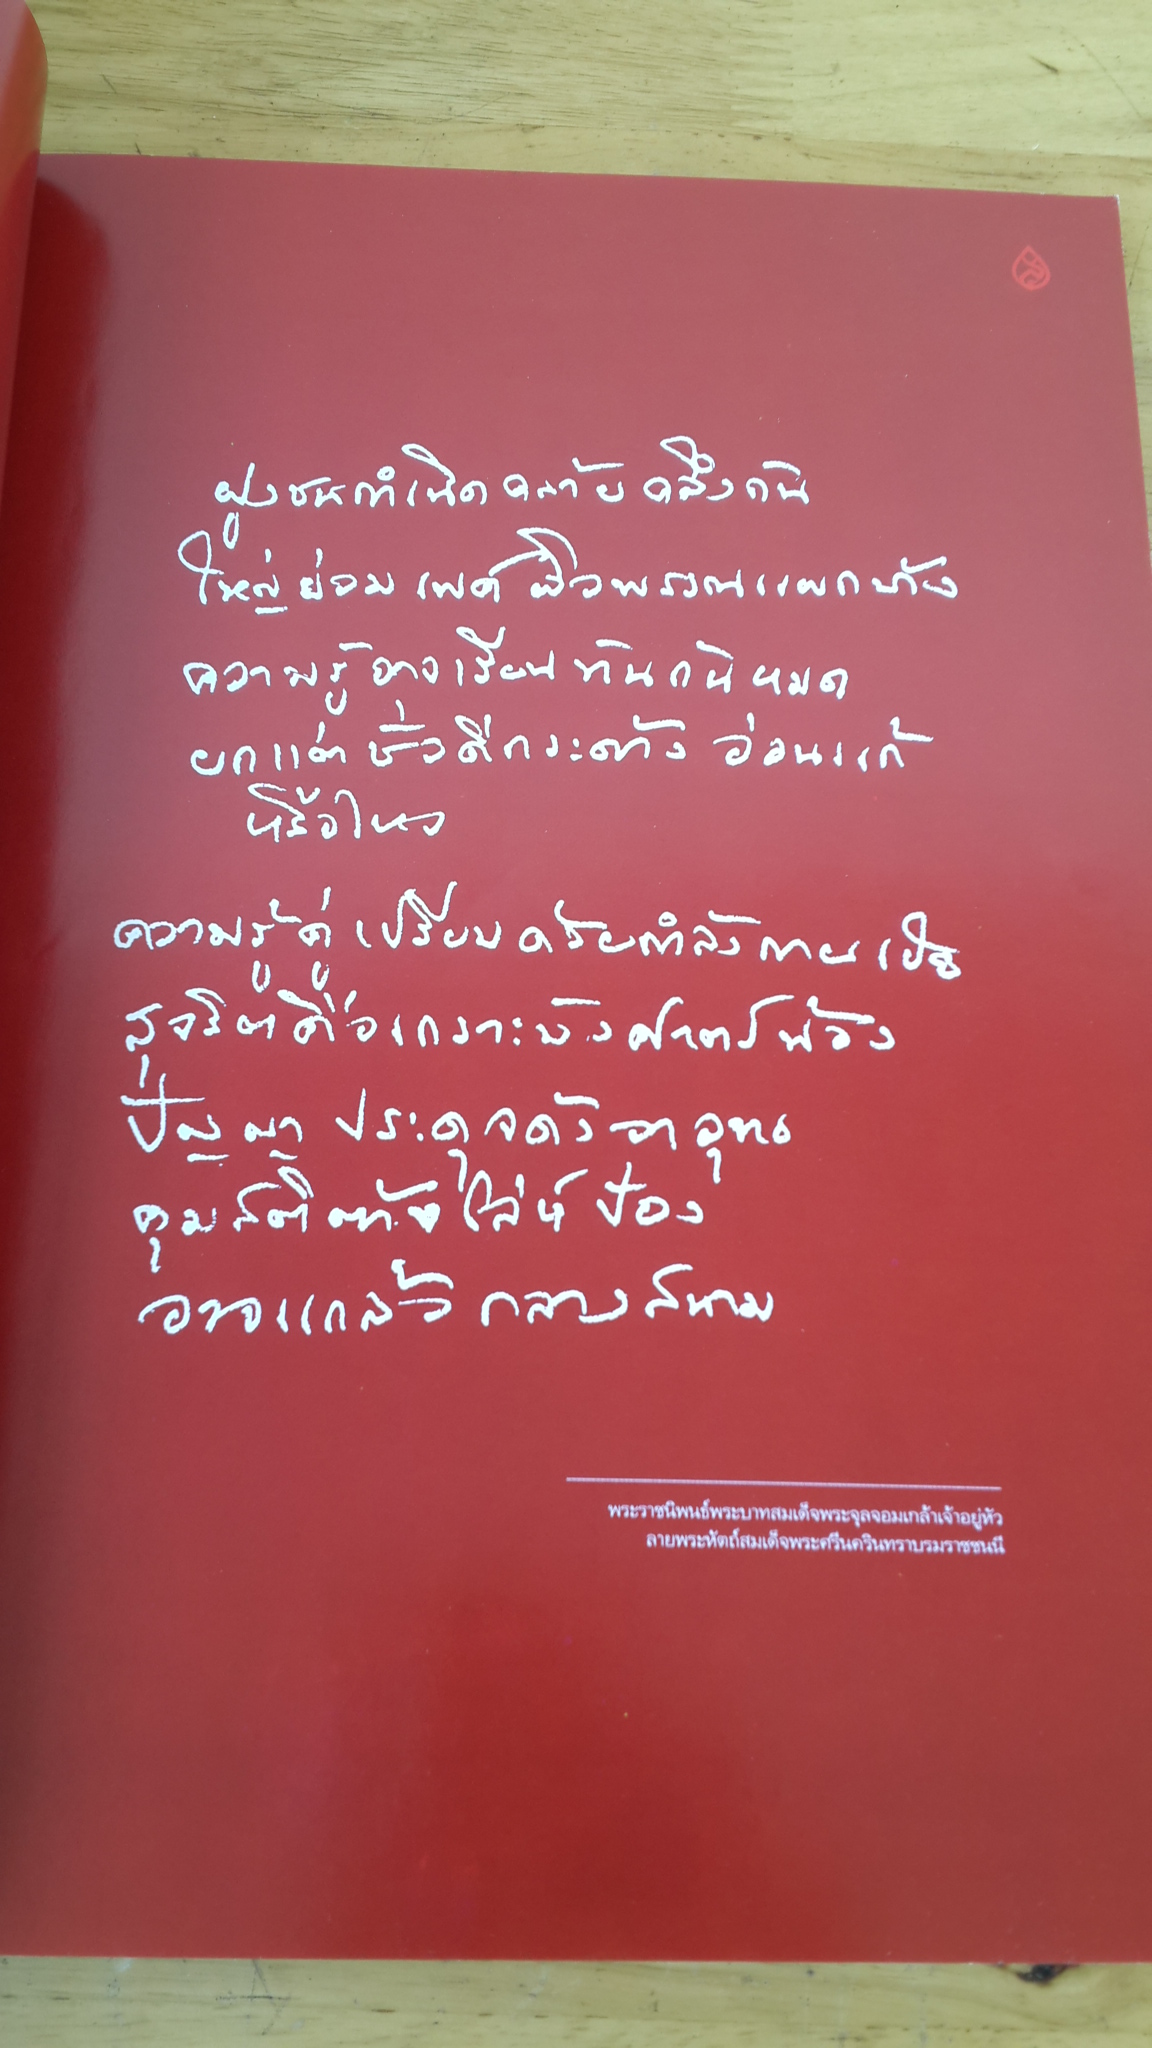 ฝูงชนกำเนิดคล้ายคลึงกัน
ใหญ่ย่อมเพศผิวพรรณแผกบ้าง
ความรู้อาจเรียนทันกันหมด
ยกแต่ชั่วดีกระด้างอ่อนแก้
หรือไหว
ความรู้คู่เปรียบด้วยกำลังกายเฮย
สุจริตคือเกราะบังศาสตร์พ้อง
ปัญญาประดุจดังอาวุธ
คุมสติต่างโล่ห์ป้อง
อาจแกล้วกลางสนาม
พระราชนิพนธ์พระบาทสมเด็จพระจุลจอมเกล้าเจ้าอยู่หัว
ลายพระหัตถ์สมเด็จพระศรีนครินทราบรมราชชนนี